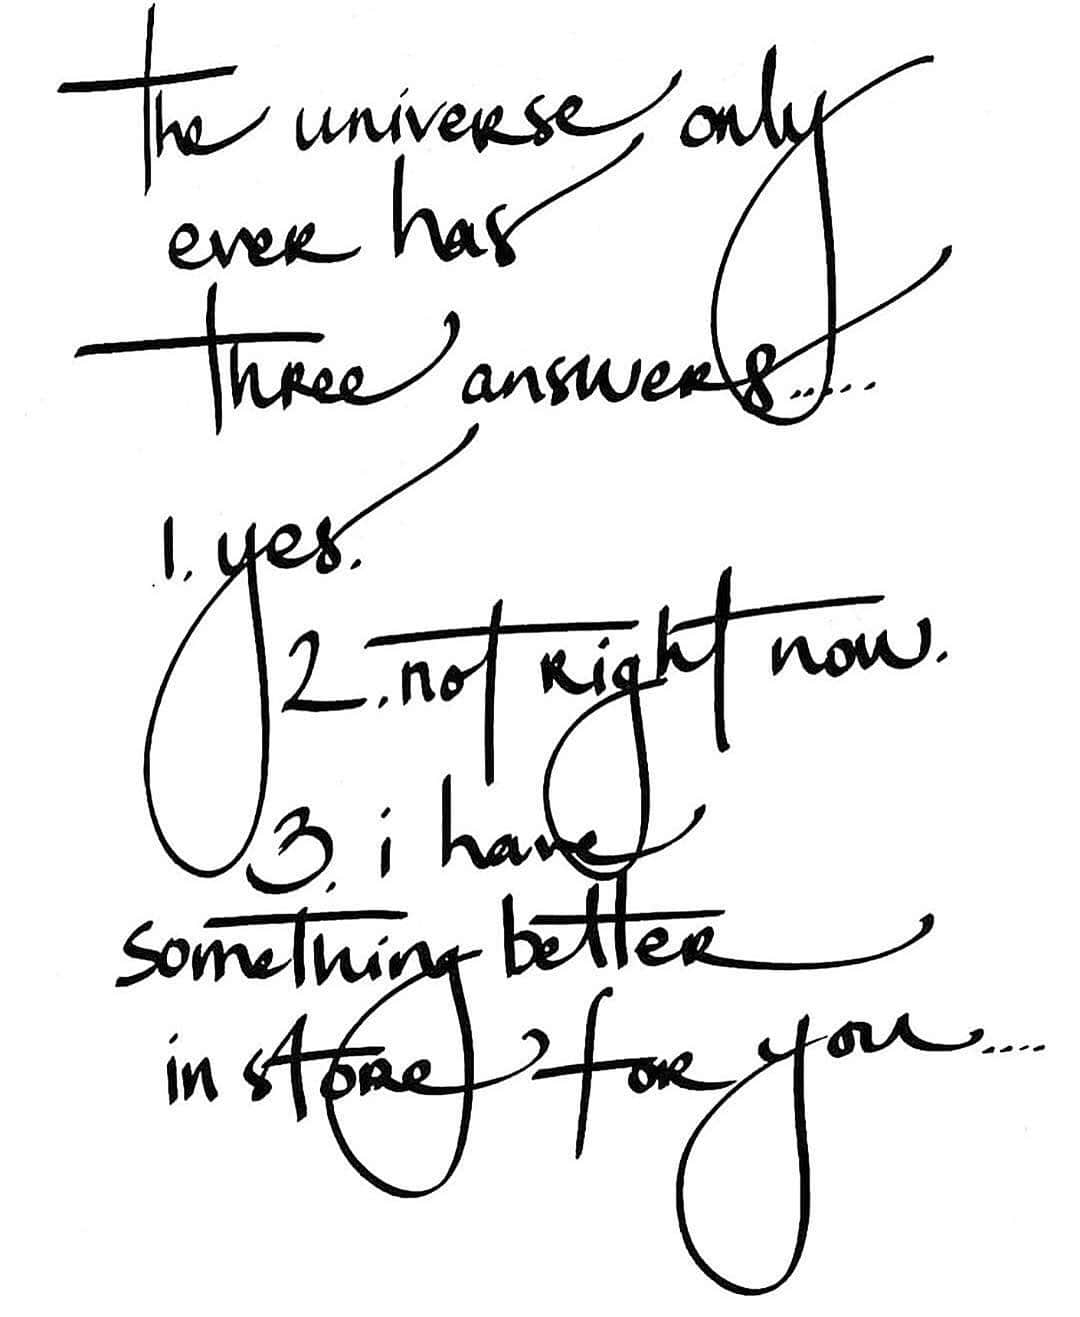 the universe only
ever has
three answers.....
1. yes.
2. not right now.
3. i have
something better
in store for you....